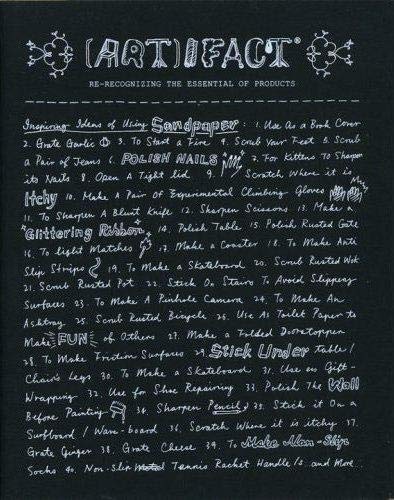 (ART)IFACT®
RE-RECOGNIZING THE ESSENTIAL OF PRODUCTS
Inspiring Ideas of Using Sandpaper: 1. Use As a Book Cover
2. Grate Garlic 3. To Start a Fire 4. Scrub Your Feet 5. Scrub
a Pair of Jeans 6. POLISH NAILS 7. For Kittens To Sharpen
its Nails 8. Open A Tight lid 9. Scratch Where it is
Itchy 10. Make A Pair Of Experimental Climbing Gloves
11. To Sharpen A Blunt Knife 12. Sharpen Scissors 13. Make a
Glittering Ribbon 14. Polish Table 15. Polish Rusted Gate
16. To light Matches 17. Make a Coaster 18. To Make Anti
Slip Stripes 19. To Make a Skateboard 20. Scrub Rusted Wok
21. Scrub Rusted Pot 22. Stick On Stairs To Avoid Slippery
Surfaces 23. To Make A Pinhole Camera 24. To Make An
Ashtray 25. Scrub Rusted Bicycle 26. Use As Toilet Paper to
Make FUN of Others 27. Make a Folded Doorstopper
28. To Make Friction Surfaces 29. Stick Under table/
Chair's Legs 30. To Make a Skateboard 31. Use as Gift-
Wrapping 32. Use for Shoe Repairing 33. Polish The Wall
Before Painting 34. Sharpen Pencil 35. Stick it On a
Surfboard / Wave-board 36. Scratch Where it is itchy 37.
Grate Ginger 38. Grate Cheese 39. To Make Non-Slip
Socks 40. Non-Slip Tennis Racket Handle/s. and More..